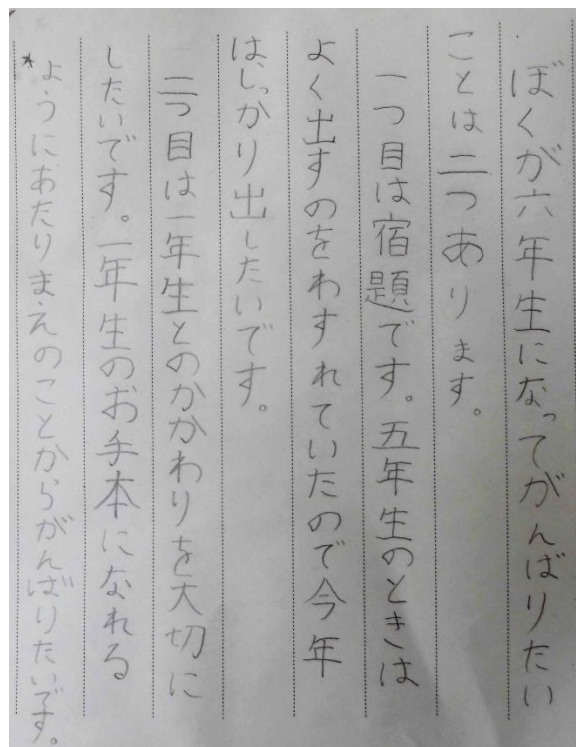 ぼくが六年生になってがんばりたい
ことは二つあります。
一つ目は宿題です。五年生のときは
よく出すのをわすれていたので今年
は、しっかり出したいです。
二つ目は一年生とのかかわりを大切に
したいです。一年生のお手本になれる
ようにあたりまえのことからがんばりたいです。